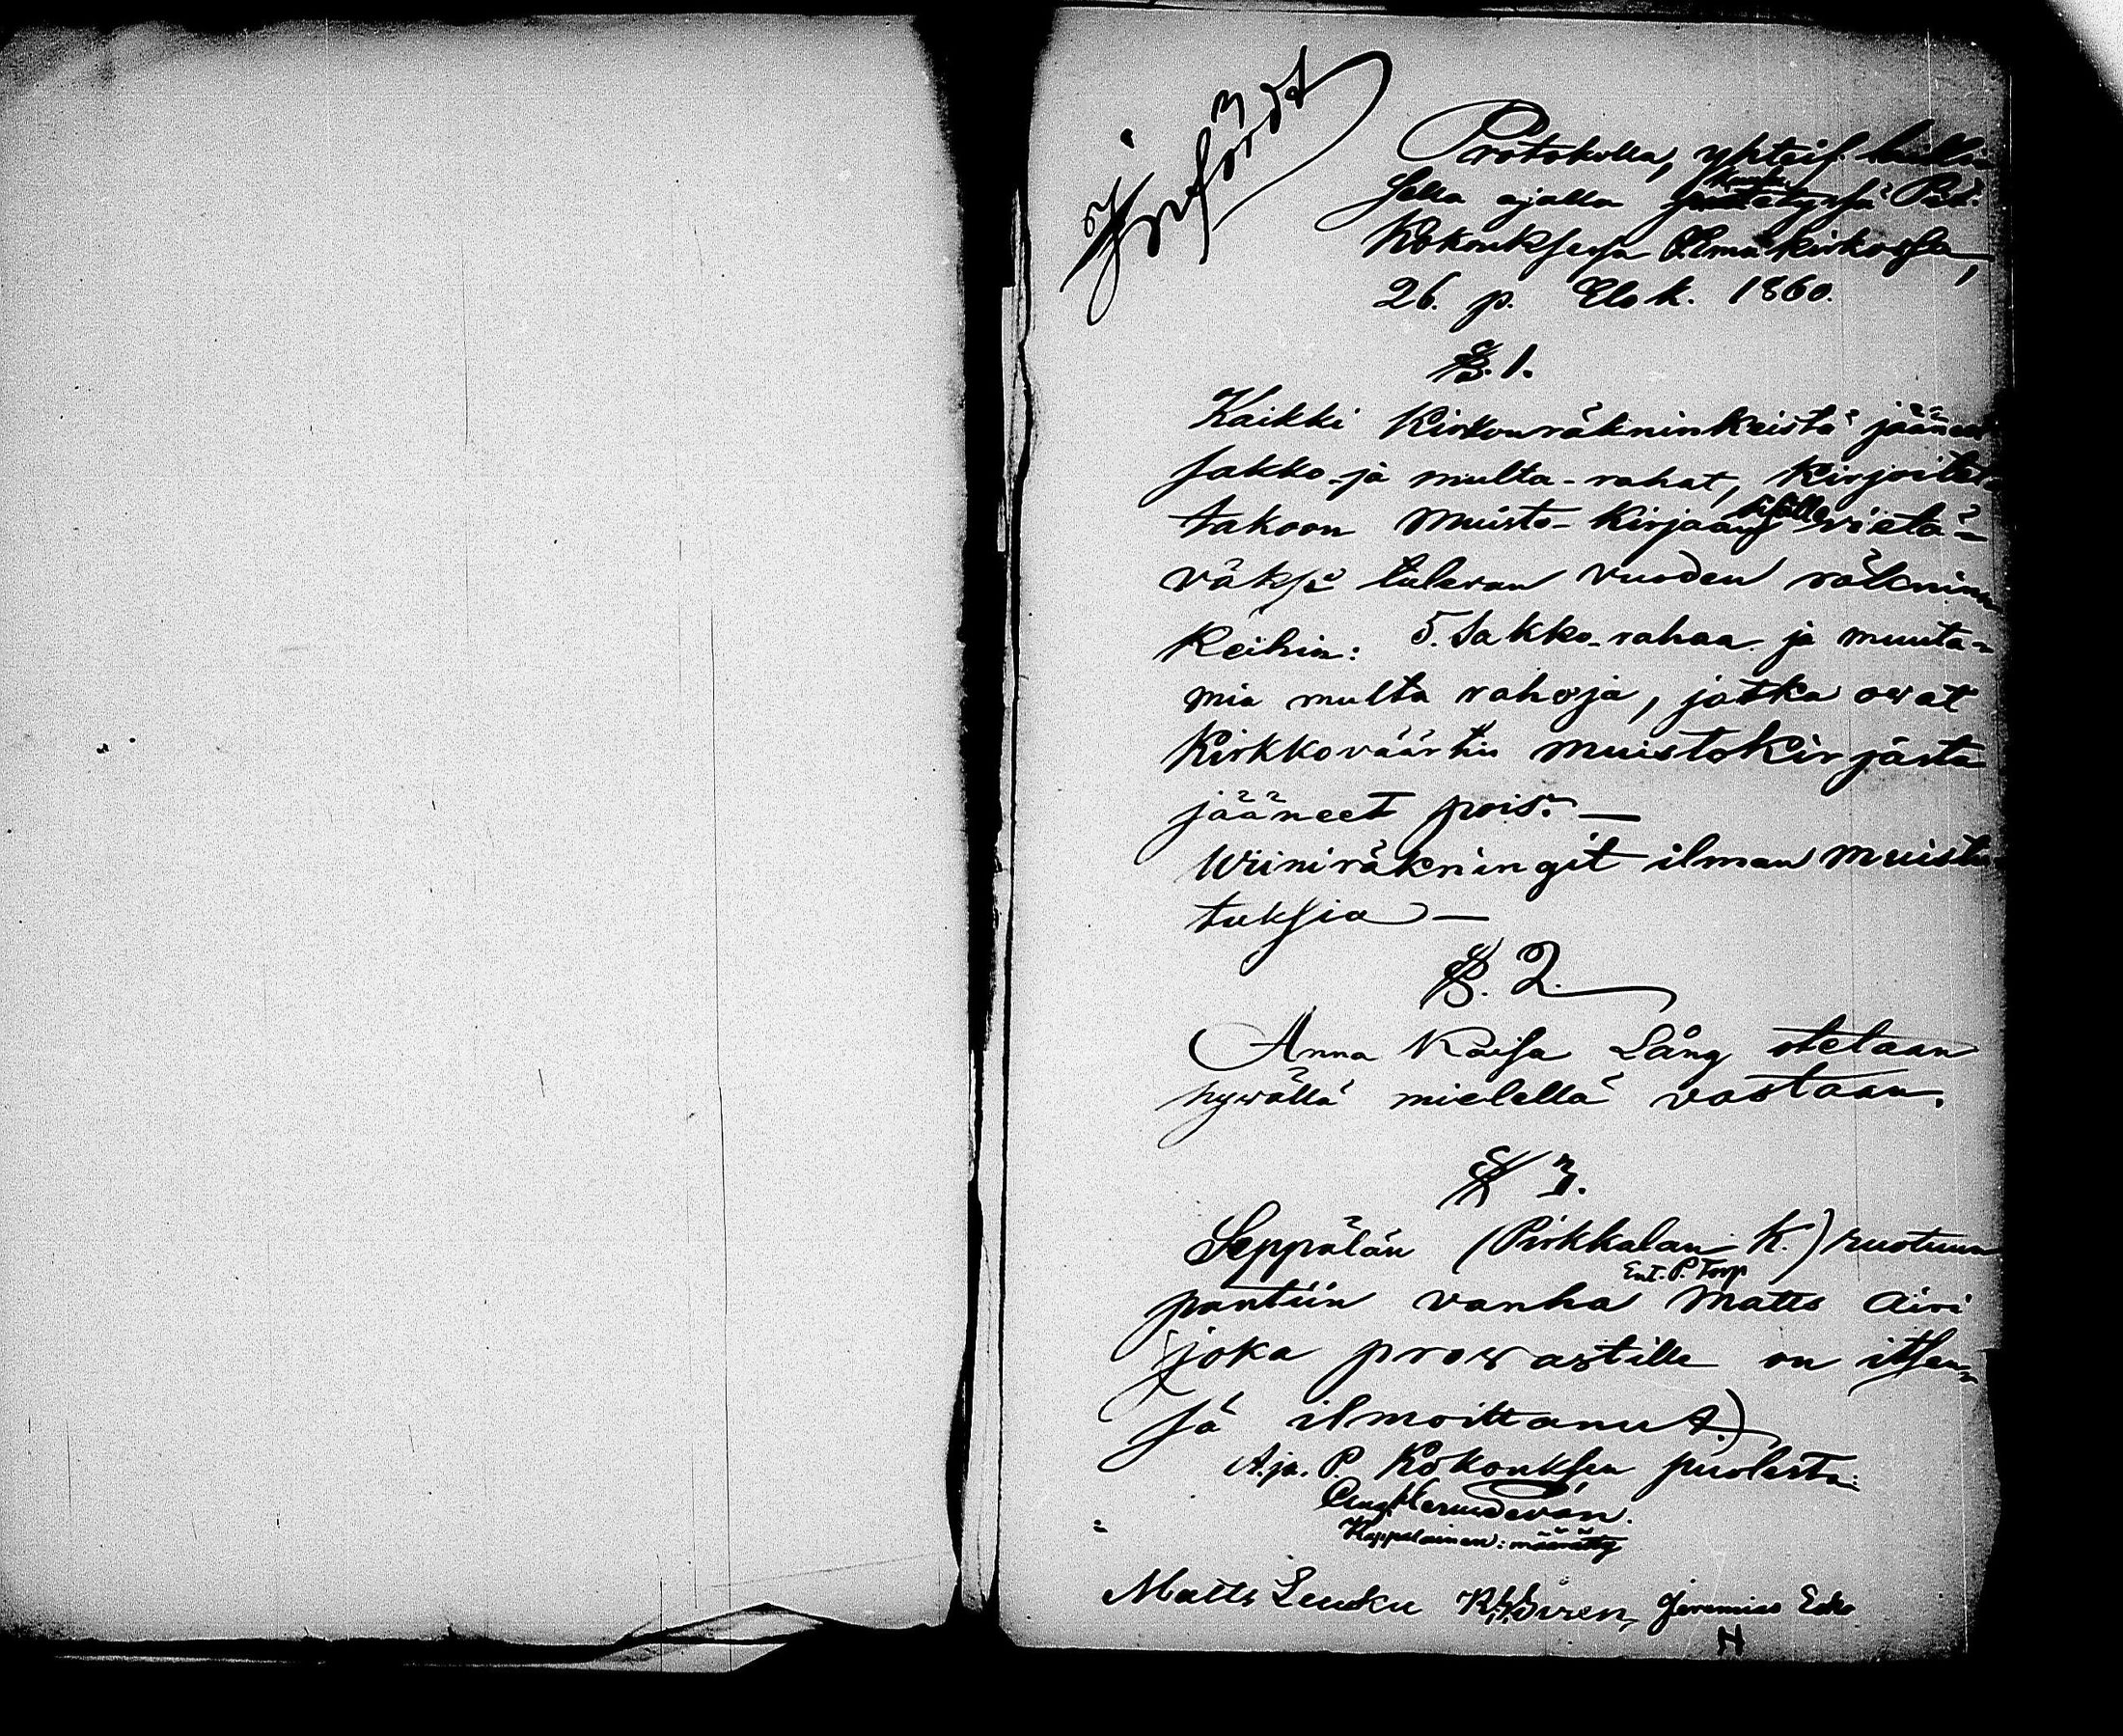 Infördt
Protokolla, yhteis. luulli
sella ajalla Pit.
Kokouksessa Ema kirkossa,
26. p. Elok. 1860.
§. 1.
Kaikki Kirkonräkninkeistä jääneet
sakko- ja multa-rahat, kirjoitet
takoon muisto-kirjaan vietä-
väksi tulevan vuoden räknin
keihin: 5. sakko-rahaa ja muuta-
mia multa rahoja, jotka owat
Kirkkoväärtin muistokirjasta
jääneet pois. —
Wiiniräkningit ilman muistu
tuksia —
§. 2.
Anna Kaisa Lång otetaan
hywällä mielellä vastaan.
§ 3.
Seppälän (Pirkkalan K.) ruotuun
Ent. P. Torp
pantiin vanha Matts Airi
(joka prowastille on itsen-
sä ilmoittanut.)
A. ja. P. Kokouksen puolesta:
Kappalainen: määrätty
Matts Leuku Jeremias Esko